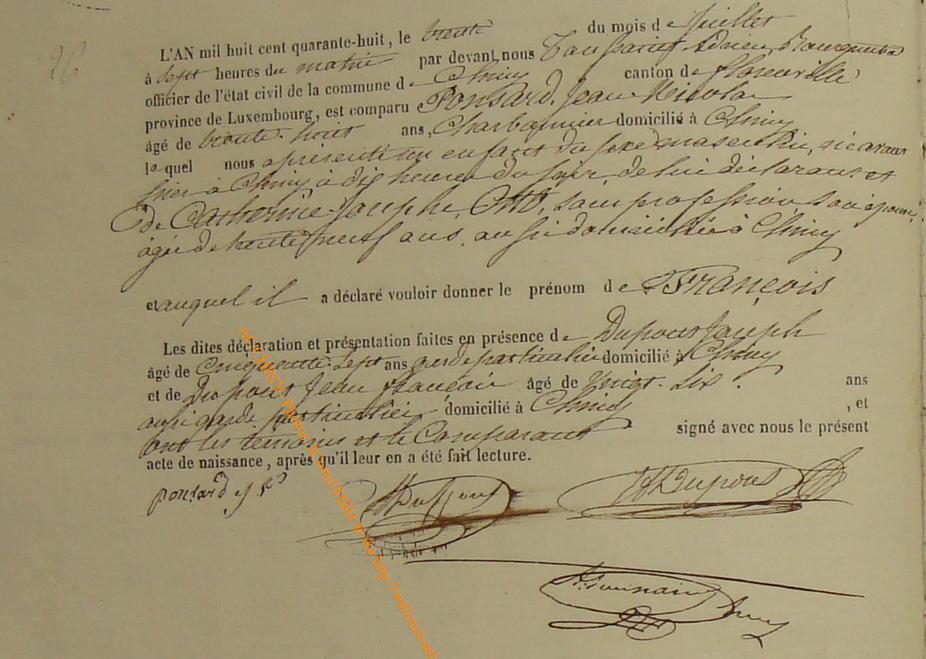 26
L'AN mil huit cent quarante-huit, le trente du mois de Juillet
à sept heures du matin par devant nous Adrien
officier de l'état civil de la commune de Chiny canton de Florenville
province de Luxembourg, est comparu Ponsard, Jean Nicolas
âgé de trente-huit ans, Charbonnier domicilié à Chiny
lequel nous a présenté un enfant du sexe masculin, né avant
hier à Chiny à dix heures du soir, de lui déclarant et
de Catherine Joseph, sans profession son épouse,
âgée de trente neuf ans, aussi domiciliée à Chiny
et auquel il a déclaré vouloir donner le prénom de François
Les dites déclaration et présentation faites en présence de Dupont Joseph
âgé de Cinquante-sept ans garde particulier domicilié à Chiny
et de Dupont Jean François âgé de vingt-six ans
aussi garde particulier, domicilié à Chiny, et
ont les témoins et le Comparant signé avec nous le présent
acte de naissance, après qu'il leur en a été fait lecture.
ponsard j